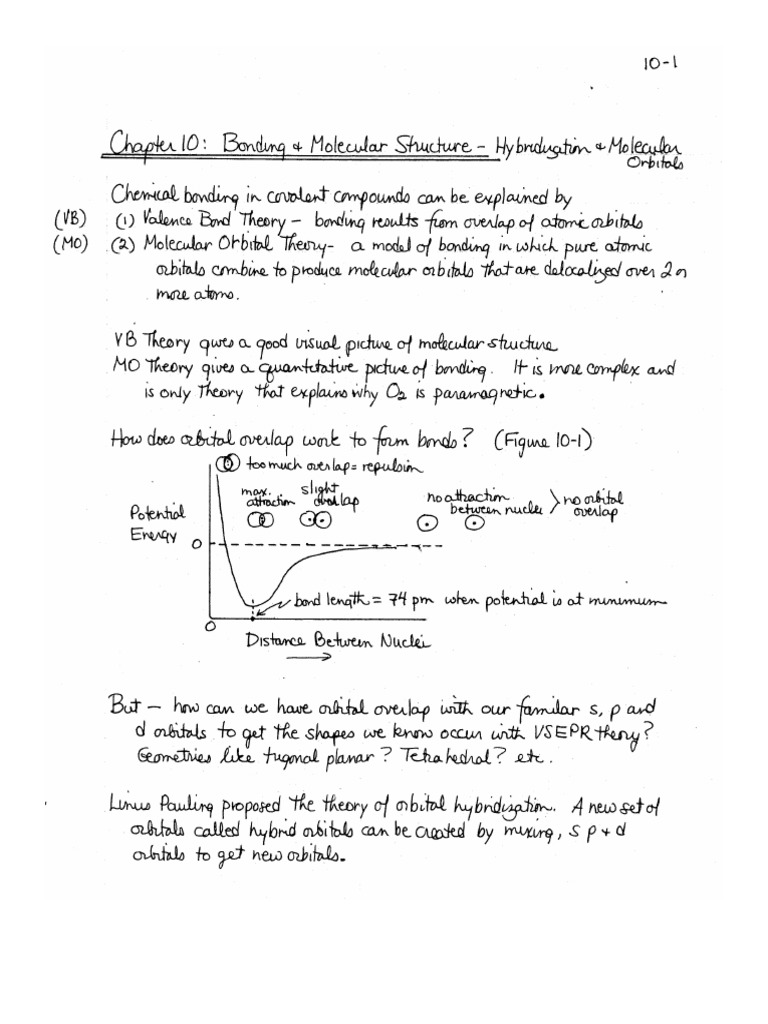 10-1
Chapter 10: Bonding & Molecular Structure - Hybridization & Molecular
Orbitals
Chemical bonding in covalent compounds can be explained by
(VB) (1) Valence Bond Theory - bonding results from overlap of atomic orbitals
(MO) (2) Molecular Orbital Theory - a model of bonding in which pure atomic
orbitals combine to produce molecular orbitals that are delocalized over 2 or
more atoms.
VB Theory gives a good visual picture of molecular structure
MO Theory gives a quantitative picture of bonding. It is more complex and
is only Theory that explains why O2 is paramagnetic.
How does orbital overlap work to form bonds? (Figure 10-1)
too much overlap = repulsion
max. attraction
slight overlap
no attraction between nuclei
no orbital overlap
Potential
Energy
0
bond length = 74 pm when potential is at minimum
0
Distance Between Nuclei
But - how can we have orbital overlap with our familar s, p and
d orbitals to get the shapes we know occur with VSEPR theory?
Geometries like trigonal planar? Tetrahedral? etc.
Linus Pauling proposed the theory of orbital hybridization. A new set of
orbitals called hybrid orbitals can be created by mixing, s p + d
orbitals to get new orbitals.